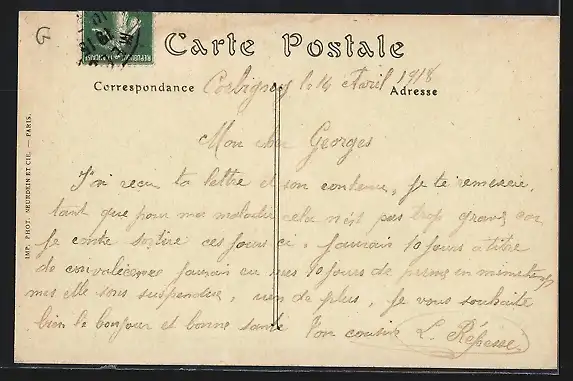 Carte Postale
Correspondance
Adresse
Corbigny le 14 Avril 1918
Mon cher Georges
J'ai reçu ta lettre et son contenue, je te remercie,
tant que pour ma maladie cela n'est pas trop grave, car
je conte sortire ces jours ci, j'aurais 10 jours a titre
de convalécence j'aurais eu mes 10 jours de perme en même temps
mes elle sons suspendue, rien de plus, je vous souhaite
bien le bonjour et bonne santé Ton cousin L.
IMP. PHOT. NEURDEIN ET CIE. — PARIS.